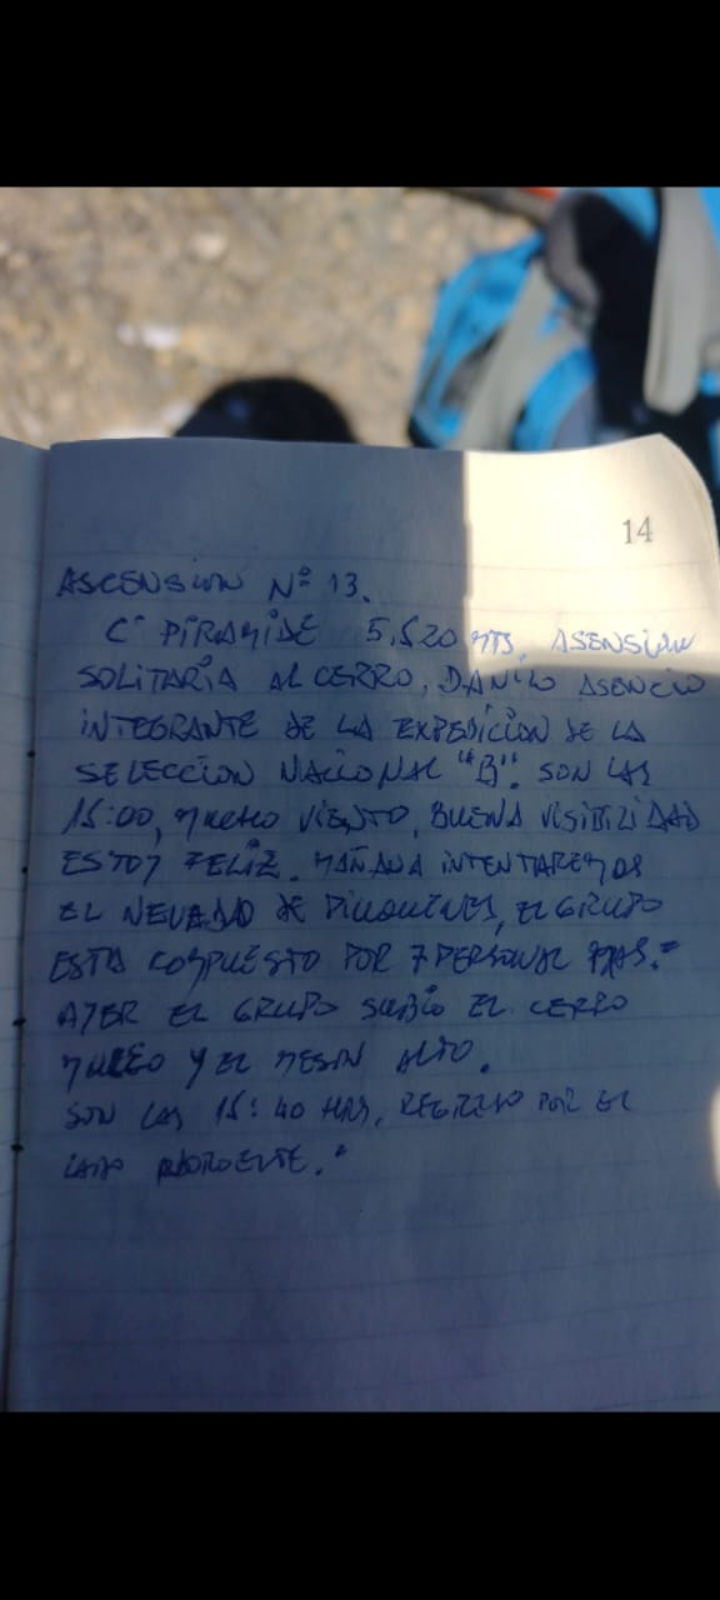 14
ASCENSION Nº 13.
Cº PIRAMIDE 5.520 MTS. ASENSION
SOLITARIA AL CERRO, DANILO ASENCIO
INTEGRANTE DE LA EXPEDICION DE LA
SELECCION NACIONAL "B". SON LAS
15:00, MUCHO VIENTO, BUENA VISIBILIDAD
ESTOY FELIZ. MAÑANA INTENTAREMOS
EL NEVADO DE PIUQUENES, EL GRUPO
ESTA COMPUESTO POR 7 PERSONAS
AYER EL GRUPO SUBIO EL CERRO
Y EL MESON ALTO.
SON LAS 15:40 HRS, REGRESO POR EL
LADO